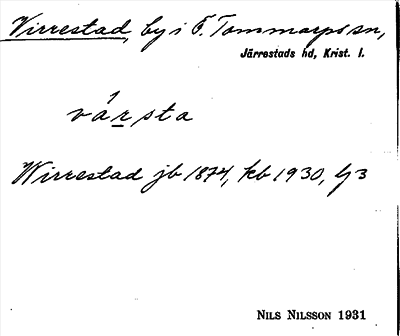 Virrestad, by i Ö. Tommarps sn,
Järrestads hd, Krist. l.
vá̱rsta
Wirrestad jb 1874, kb 1930, 
NILS NILSSON 1931